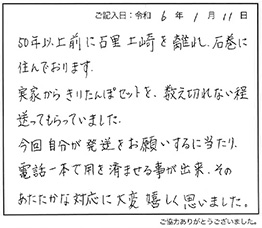 ご記入日：令和 6 年 1 月 11 日
50年以上前に 土崎を離れ、石巻に
住んでおります。
実家からきりたんぽセットを、数え切れない程
送ってもらっていました。
今回自分が発送をお願いするに当たり、
電話一本で用を済ませる事が出来、その
あたたかな対応に大変嬉しく思いました。
ご協力ありがとうございました。